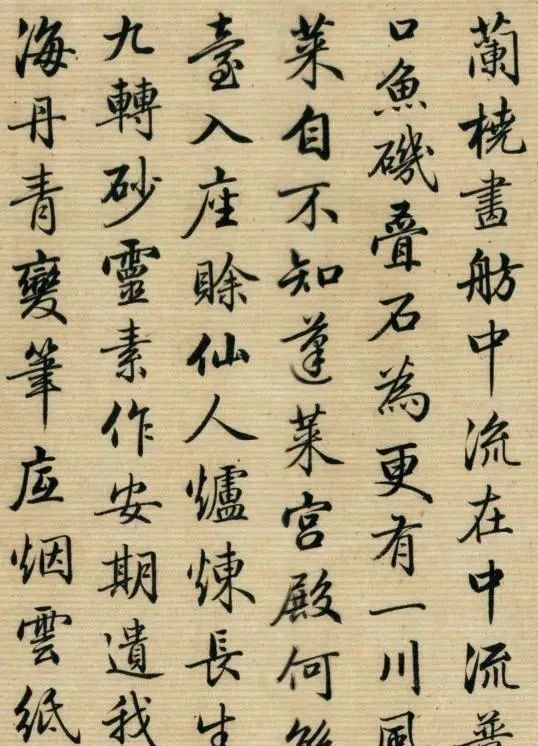 蘭橈畫舫中流在中流
口魚磯疊石為更有一川風
菜自不知蓬萊宮殿何
臺入座賒仙人爐煉長生
九轉砂靈素作安期遺我
海丹青變筆底烟雲紙